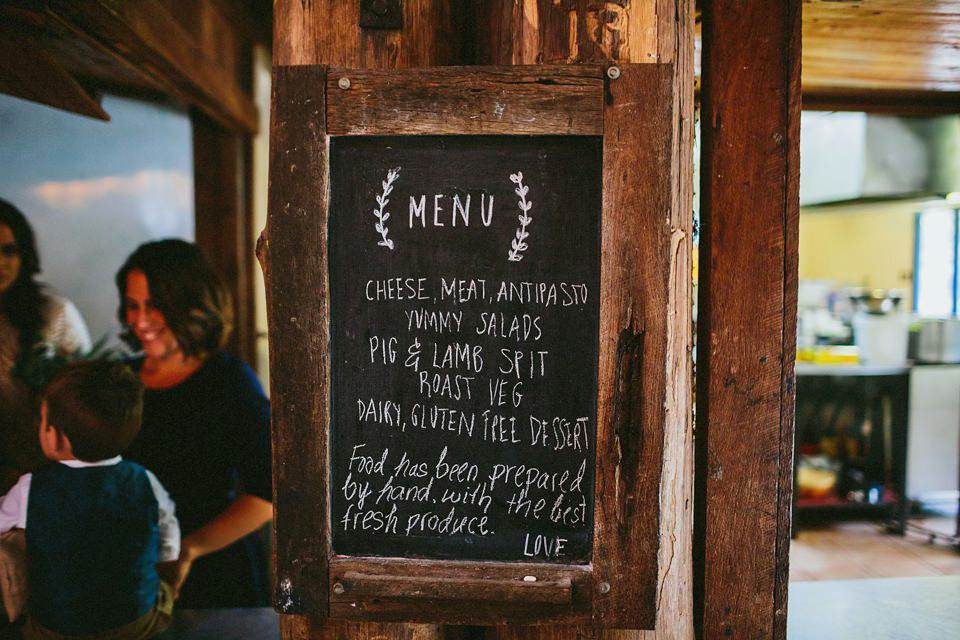 MENU
CHEESE, MEAT, ANTIPASTO
YUMMY SALADS
PIG & LAMB SPIT
ROAST VEG
DAIRY, GLUTEN FREE DESSERT
Food has been prepared
by hand, with the best
fresh produce.
LOVE